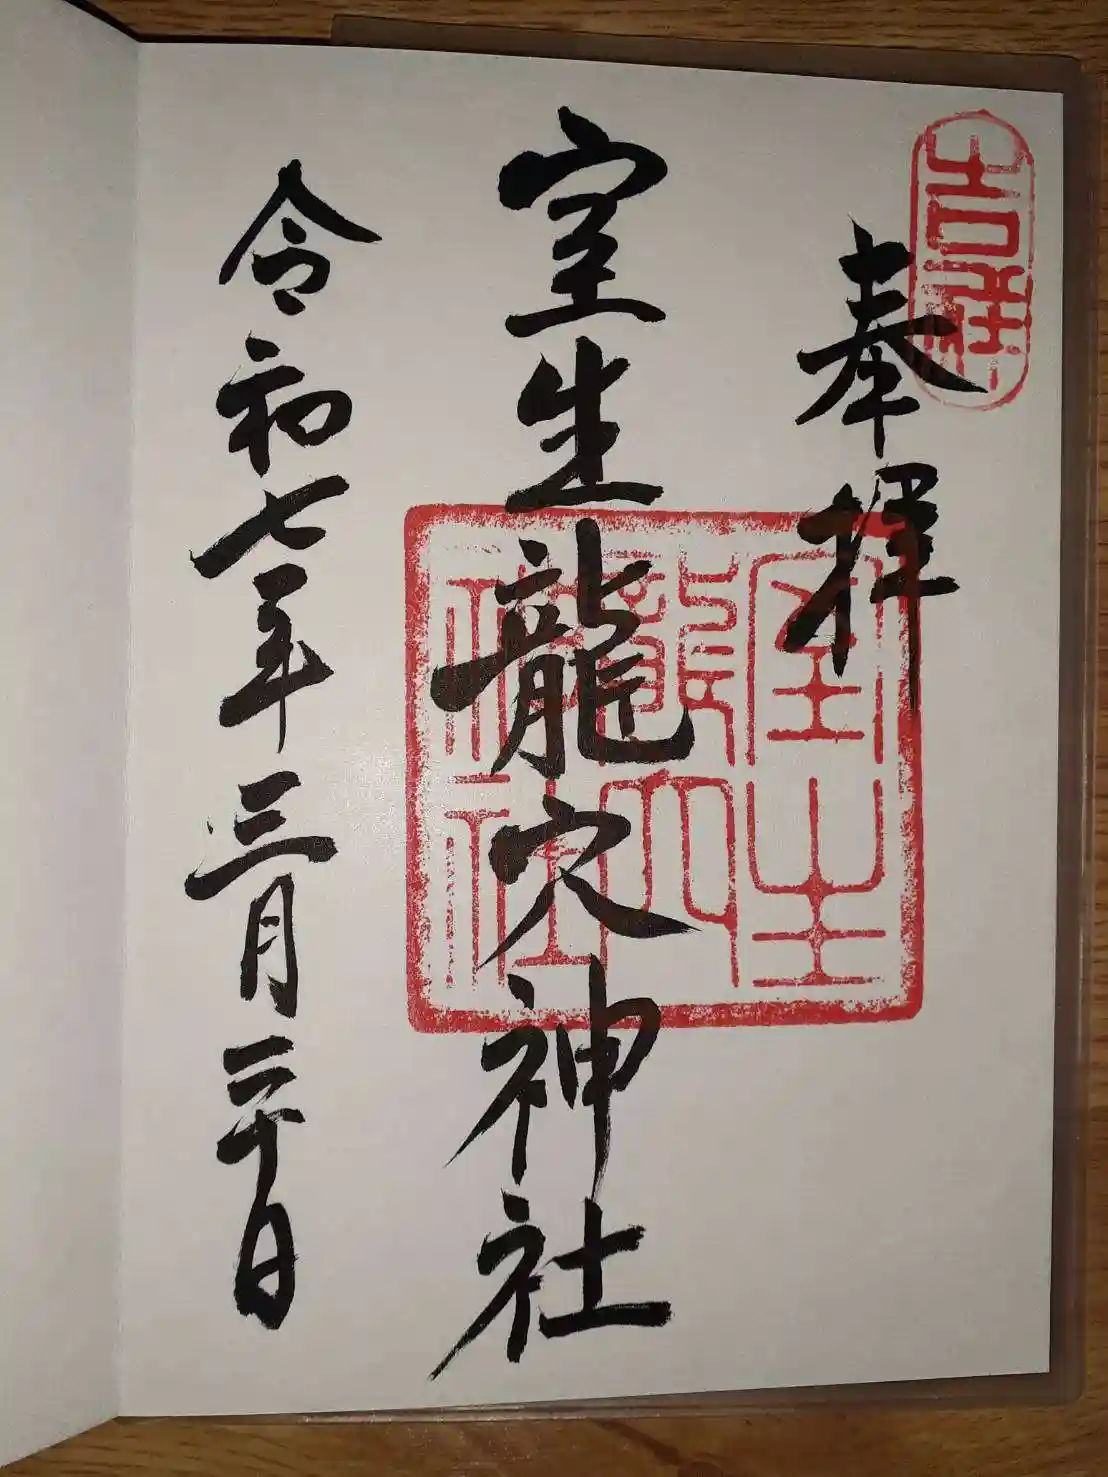 吉祥
奉拝
室生龍穴神社
室生
龍穴
神社
令和七年三月二十日